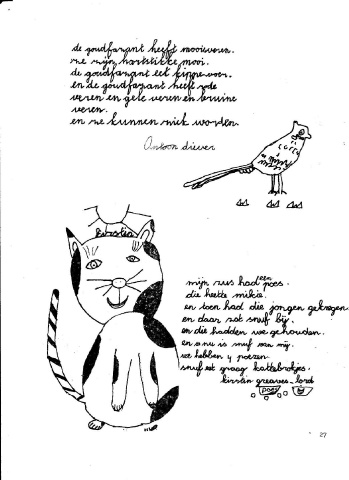 de goudfazant heeft mooiveren.
ze zijn hartstikke mooi.
de goudfazant eet kippevoer.
en de goudfazant heeft rode
veren en gele veren en bruine
veren.
en ze kunnen ziek worden.
Antoon diever
kirsten
mijn zus had een poes.
die heette mikie.
en toen had die jongen gekregen
en daar zat snuf bij.
en die hadden we gehouden.
en nu is snuf van mij.
we hebben 4 poezen.
snuf eet graag kattebrokjes.
kirstin greaves-lord
poes
27